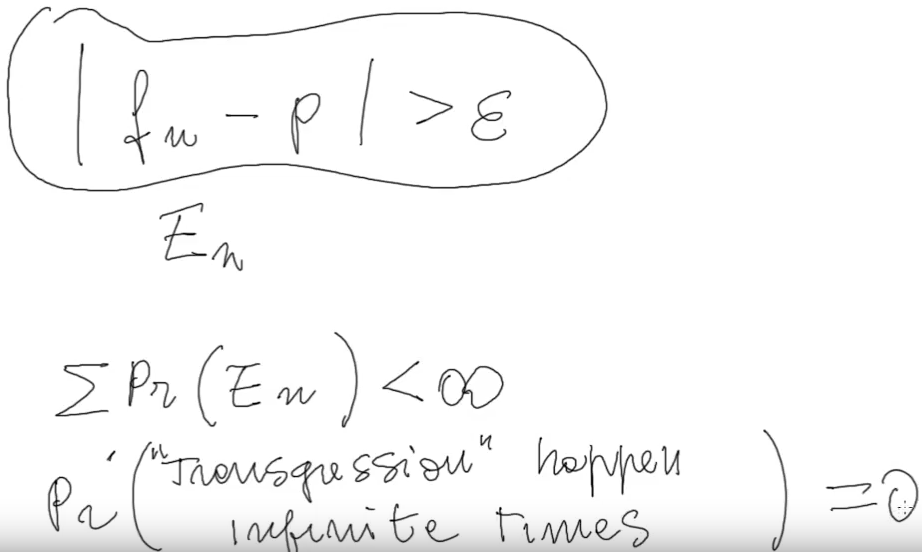 | fn - p | > ε
En
Σ Pr (En) < ∞
Pr ("Transgression" happen
infinite times) = 0